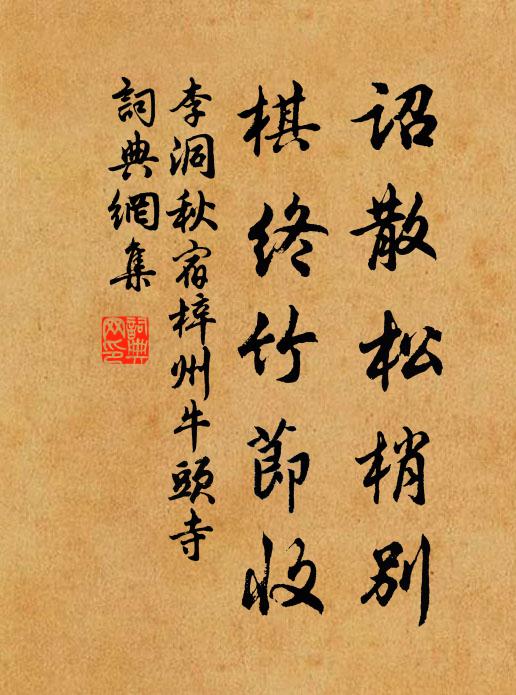 詔散松梢別
棋終竹節收
李洞秋宿梓州牛頭寺
詞典網集
詞典網印